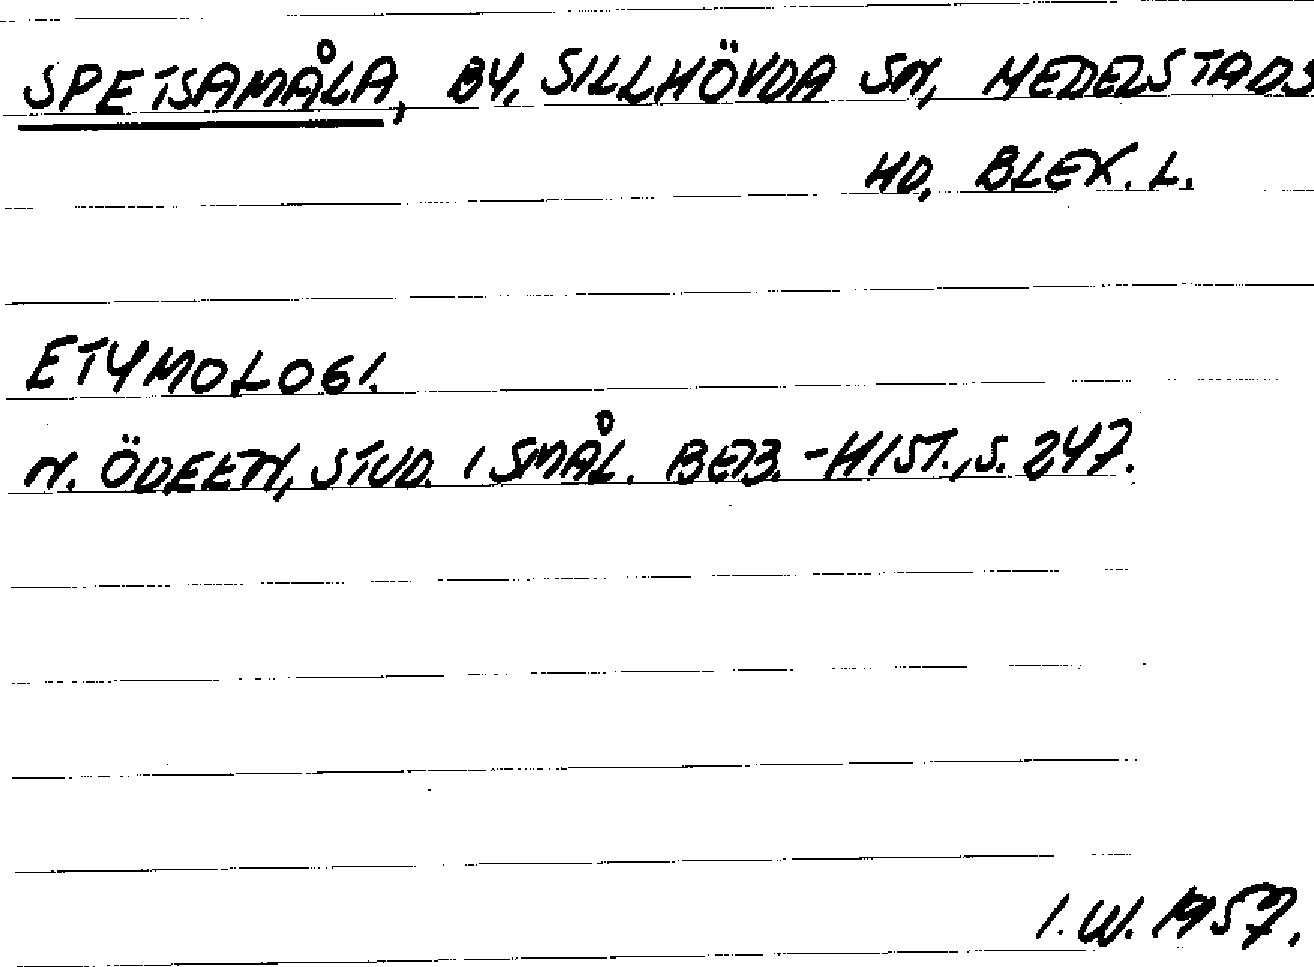 SPETSAMÅLA, BY, SILLHÖVDA SN, MEDELSTADS
HD, BLEK. L.
ETYMOLOGI.
N. ÖDEEN, STUD. I SMÅL. BEB.-HIST., S. 247.
I. W. 1957.